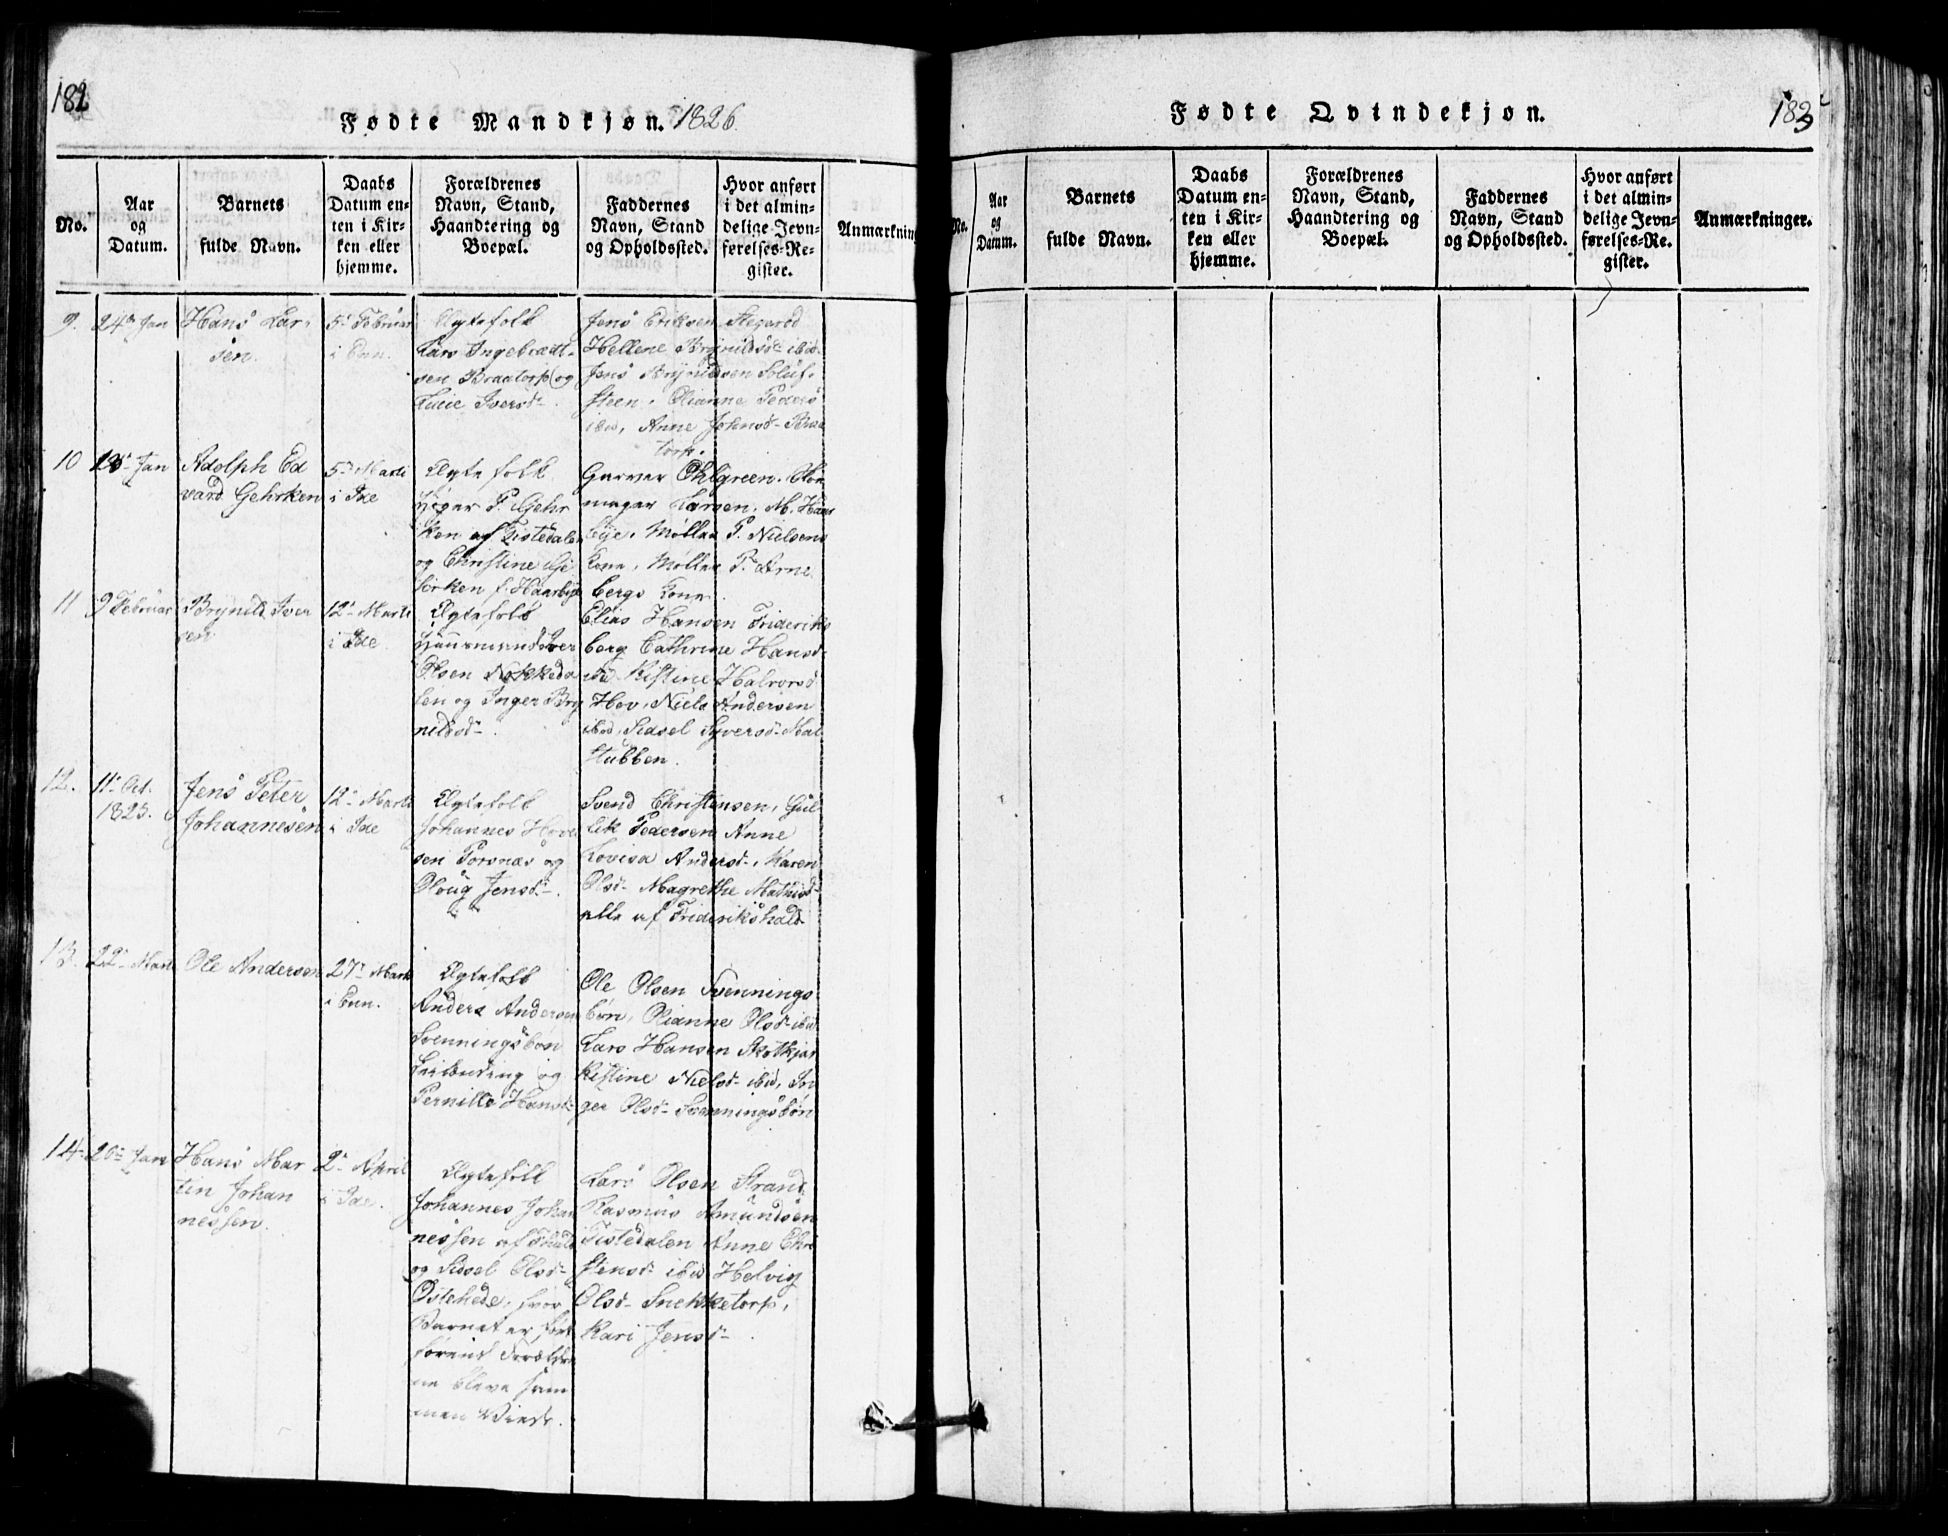 182
Fødte Mandkjøn. 1826
No.
Aar
og
Datum.
Barnets
fulde Navn.
Daabs
Datum en-
ten i Kir-
ken eller
hjemme.
Forældrenes
Navn, Stand,
Haandtering og
Boepæl.
Faddernes
Navn, Stand
og Opholdssted.
Hvor anført
i det almin-
delige Jevn-
førelses-Re-
gister.
Anmærkning
9.
24de Jan
Hans Lar-
sen.
5te Februar
i Enn.
Ægtefolk
Lars Ingebrædt-
sen Braatorp og
Lucie Iversd-
Jens Eriksen
Hellene Brynildsd- ibid.
Jens Brynildsen
steen. Olianne Peders
ibid, Anne Johnsd- Braa
torp.
10
Jan
Adolph Ed
vard Gehrken
5te Marti
i Ide
Ægtefolk
P. Gehr
ken af Tistedalen
og Christine
f. Haarbye
Garver Ohlgreen.
mager Larsen. M. Haar
bye. Møller P. Nielsens
Kone. Møller P. Arne
bergs Kone
11
9 Februar
Brynild Iver
sen
12te Marti
i Ide
Ægtefolk
Huusmand Iver
Olsen Nokkeda
len og Inger Bry
nildsd-
Elias Hansen Frideriks
berg Cathrine Hansd-
ibid Kistine Halvorsd
Hov, Niels Andersen
ibid, Sidsel Syversd- Mal
stubben.
12.
11te Oct.
1825.
Jens Peter
Johannesen
12te Marti
i Ide
Ægtefolk
Johannes Hove
sen Porsnæs og
Oloug Jensd-
Svend Christensen, Gul
lik Pedersen Anne
Lovisa Andersd-, Karen
Olsd- Magrethe Mathisd-
alle af Friderikshald
13.
22de Marti
Ole Andersen
27de Marti
i Enn.
Ægtefolk
Anders Andersen
Svenningsbøn
Leilænding og
Pernille Hansd-
Ole Olsen Svennings
bøn, Olianne Olsd- ibid
Lars Hansen Skotkjær
Kistine Nielsd- ibid, In
ger Olsd- Svenningsbøn
14
20de Jan
Hans Mar
tin Johan
nessen.
2de April
i Ide.
Ægtefolk
Johannes Johan
nessen af Fhald
og Sidsel Olsd-
Østehede, hvor
Barnet er født
førend Forældre
ne bleve sam
men Viede.
Lars Olsen Strand
Rasmus Amundsen
Tistedalen Anne Chri
stensd- ibid Helvig
Olsd- Snekketorp,
Kari Jensd-
183
Fødte Qvindekjøn.
No.
Aar
og
Datum.
Barnets
fulde Navn.
Daabs
Datum en-
ten i Kir-
ken eller
hjemme.
Forældrenes
Navn, Stand,
Haandtering og
Boepæl.
Faddernes
Navn, Stand
og Opholdssted.
Hvor anført
i det almin-
delige Jevn-
førelses-Re-
gister.
Anmærkninger.